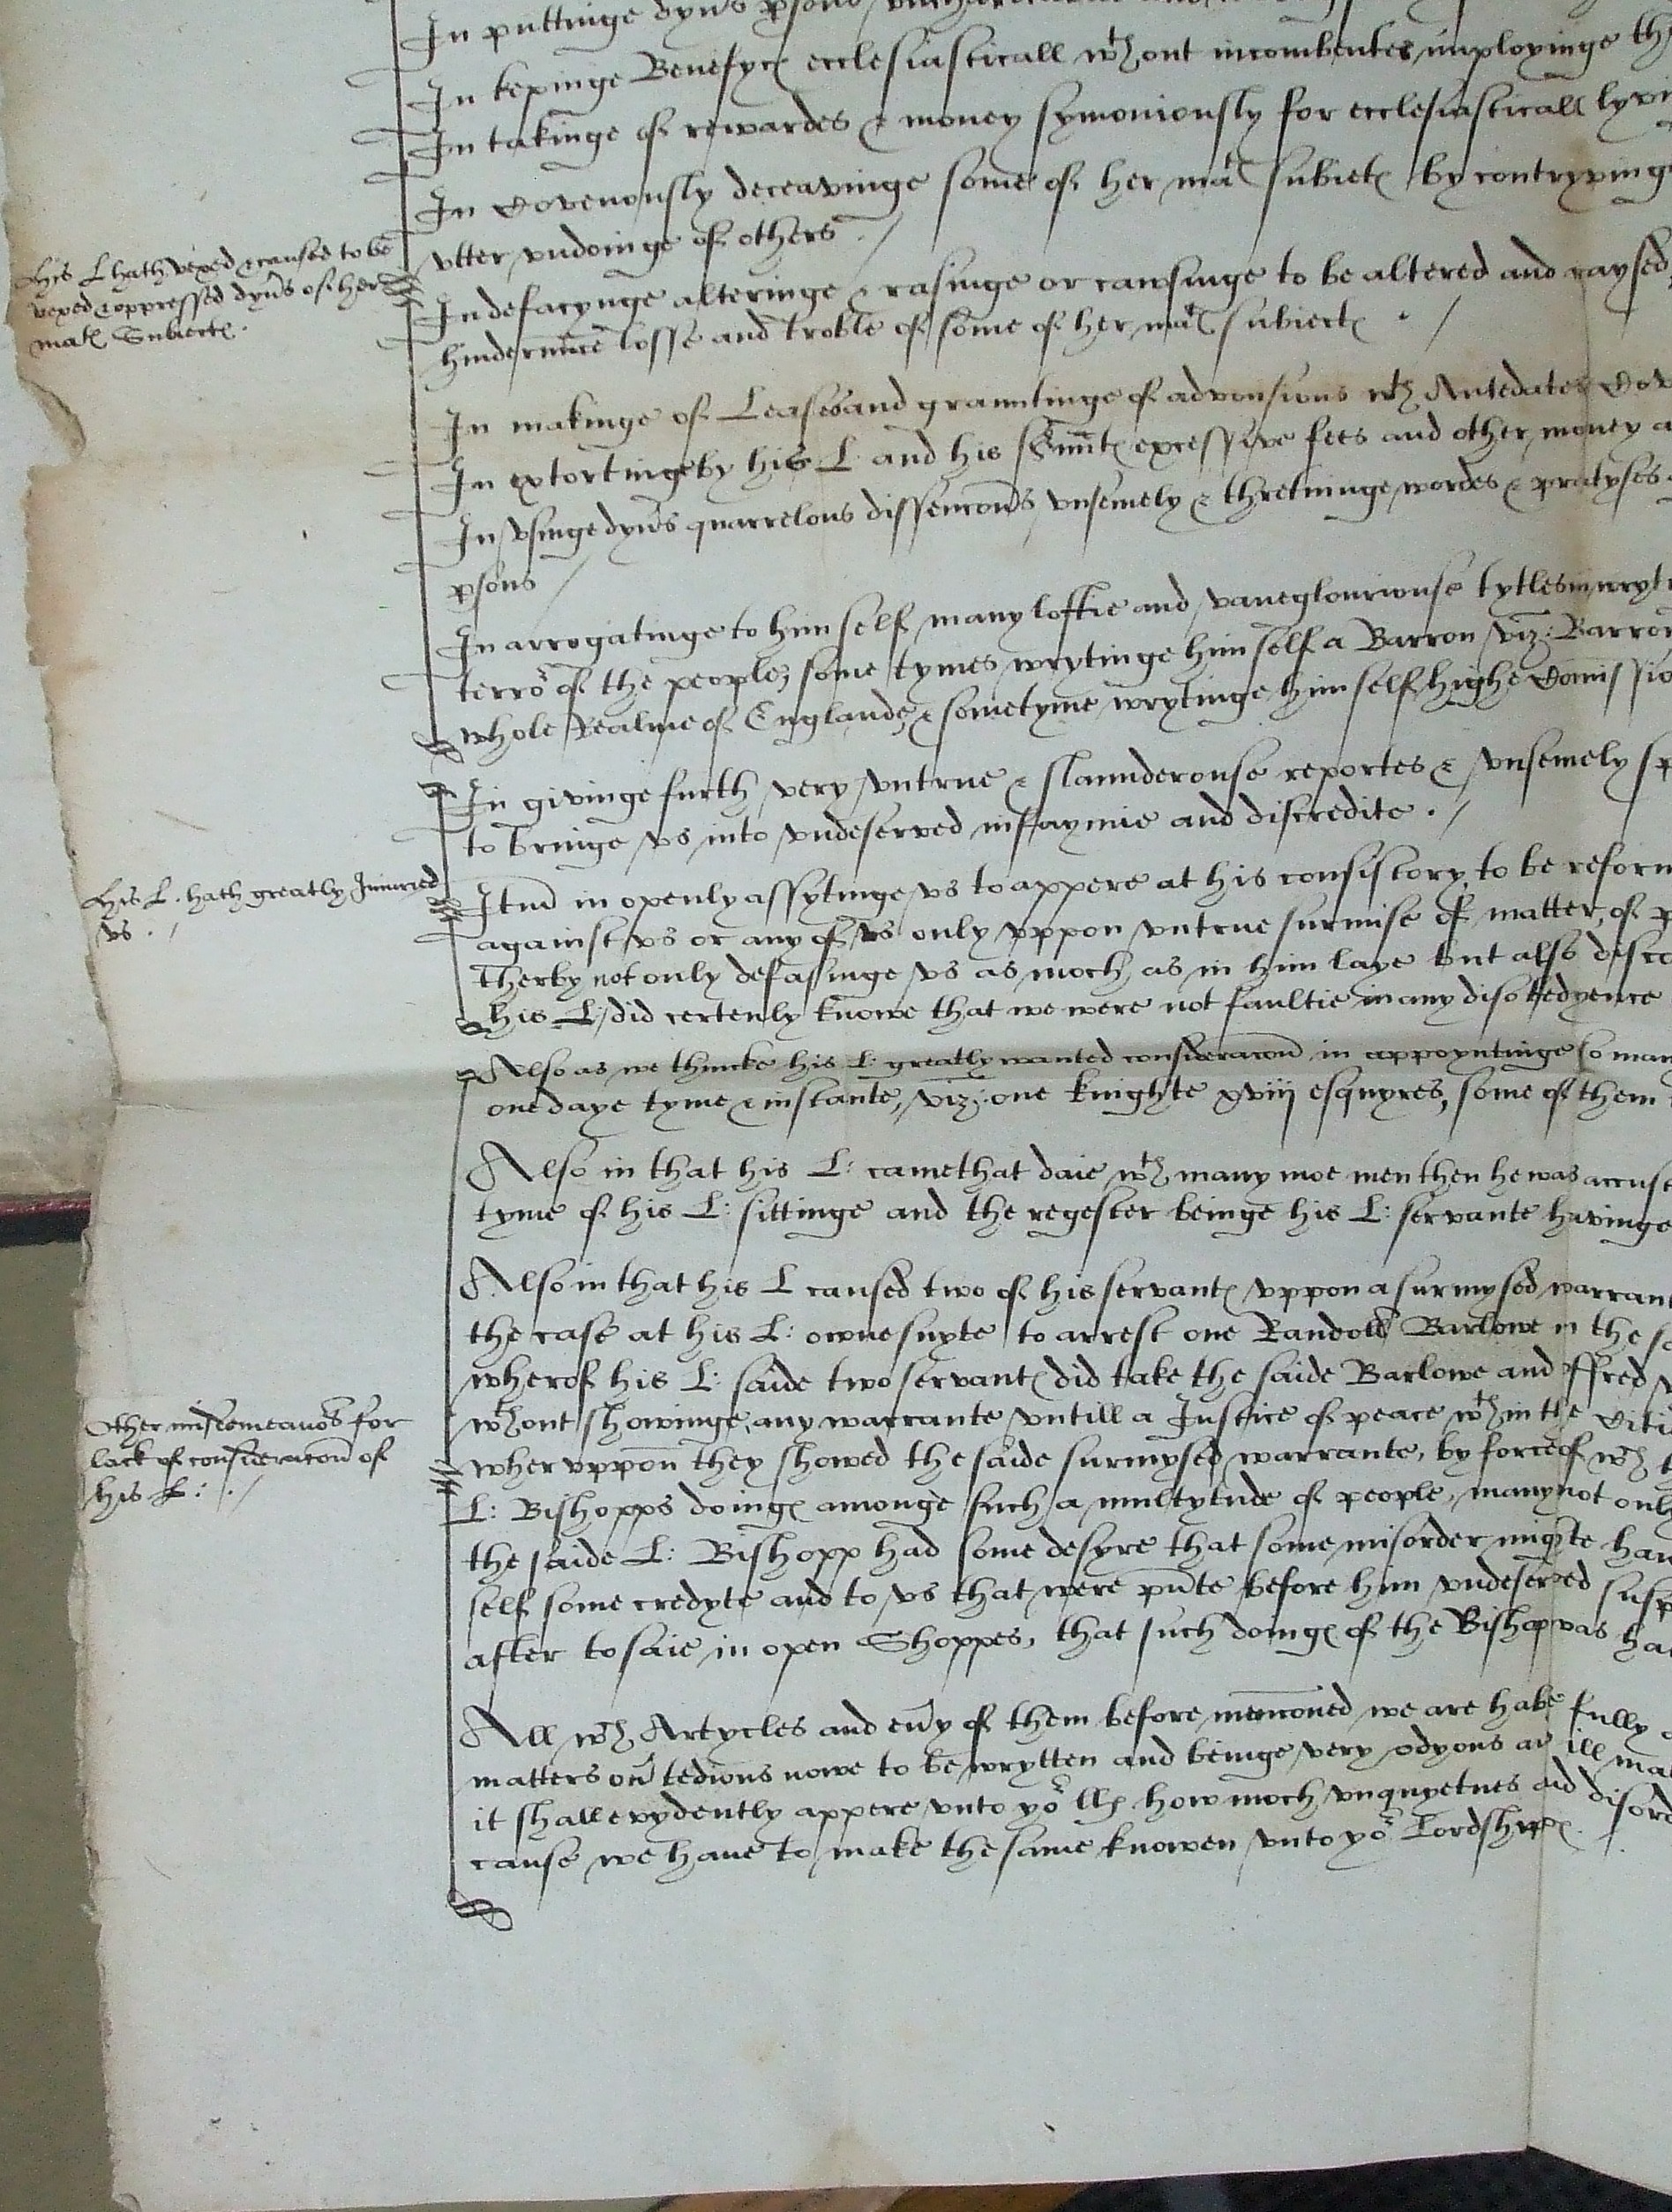 In puttinge dyv's psons
In kepinge Benefyc ecclesiasticall wthout incombentes imployinge the
In takinge of rewardes & money symoniously for ecclesiasticall lyvi
In Covenously deceavinge some of her mat subiect by contryving
utter undoinge of others . /
His L hath vexed & caused to be
vexed & oppressed dyv's of her
mat Subiect .
In defacynge alteringe & rasinge or cawsinge to be altered and raysed
hindermnce losse and troble of some of her mat subiect . /
In makinge of Leases and grauntinge of advousions wth Antedates Cov
In extortinge by his L and his s'unt excessyve fees and other money a
In usinge dyv's quarrelous dissencons unsemely & thretninge wordes & practyses
psons /
In arrogatinge to himself many loftie and vaneglouriouse tytles in wryt
terror of the people, some tymes wrytinge himself a Barron viz: Barron
whole Realme of Englande, & sometyme wrytinge himself highe Comissio
In givinge furth very untrue & slaunderouse reportes & unsemely sp
to bringe us into undeserved infaymie and discredite . /
His L . hath greatly Iniuried
us . /
Itm in openly assytinge us to appere at his consistory to be reform
against us or any of us only uppon untrue surmise of matter, of p
therby not only defasinge us as moch as in him laye but also disco
his L: did certenly knowe that we were not faultie in any disobedyence
Also as we thincke his L: greatly wanted consideracon in appoyntinge so man
one daye tyme & instante, viz: one knighte xviij esquyres, some of them
Also in that his L: came that daie wth many moe men then he was accust
tyme of his L: sittinge and the regester beinge his L: servante havinge
Also in that his L caused two of his servant uppon a surmysed warrant
the case at his L: owne suyte to arrest one Randoll Barlowe in the sa
wherof his L: saide two servant did take the saide Barlowe and offred
Other misdemeanors for
lack of consideracon of
his L: . /
wthout showinge any warrante untill a Justice of peace wthin the Citi
wheruppon they showed the saide surmysed warrante, by force of wch
L: Bishopps doing amonge such a multytude of people, many not only
the saide L: Bishopp had some desyre that some misorder mighte have
self some credyte and to us that were pnte before him undeserved susp
after to saie in open Shoppes, that such doing of the Bishop was
All wch Artycles and eny of them before mencioned we are hable fully
matters ov' tedious nowe to be wrytten and beinge very odyous and ill
it shall evydently appere unto yor llp how moch unquyetnes and disord
cause we have to make the same knowen unto yor Lordshipp .